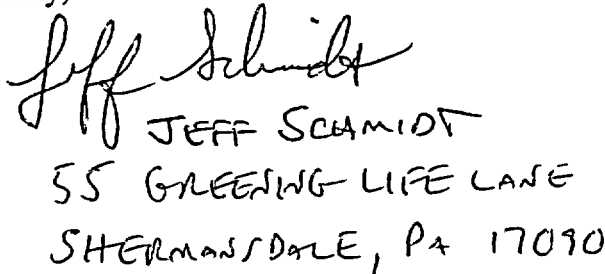 Jeff Schmidt
JEFF SCHMIDT
55 GREENING LIFE LANE
SHERMANSDALE, PA 17090